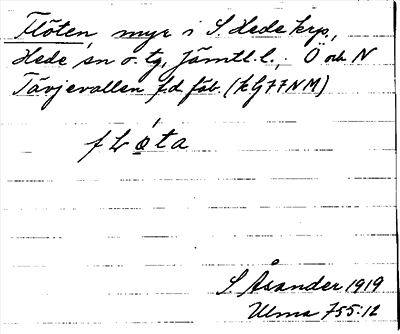 Flöten, myr i S. Hede krp.,
Hede sn o. tg, Jämtl. l., Ö och N
Tävjevallen f.d. fäb. (kG77NM)
fLo̱ta
S Åsander 1919
Ulma 755:12